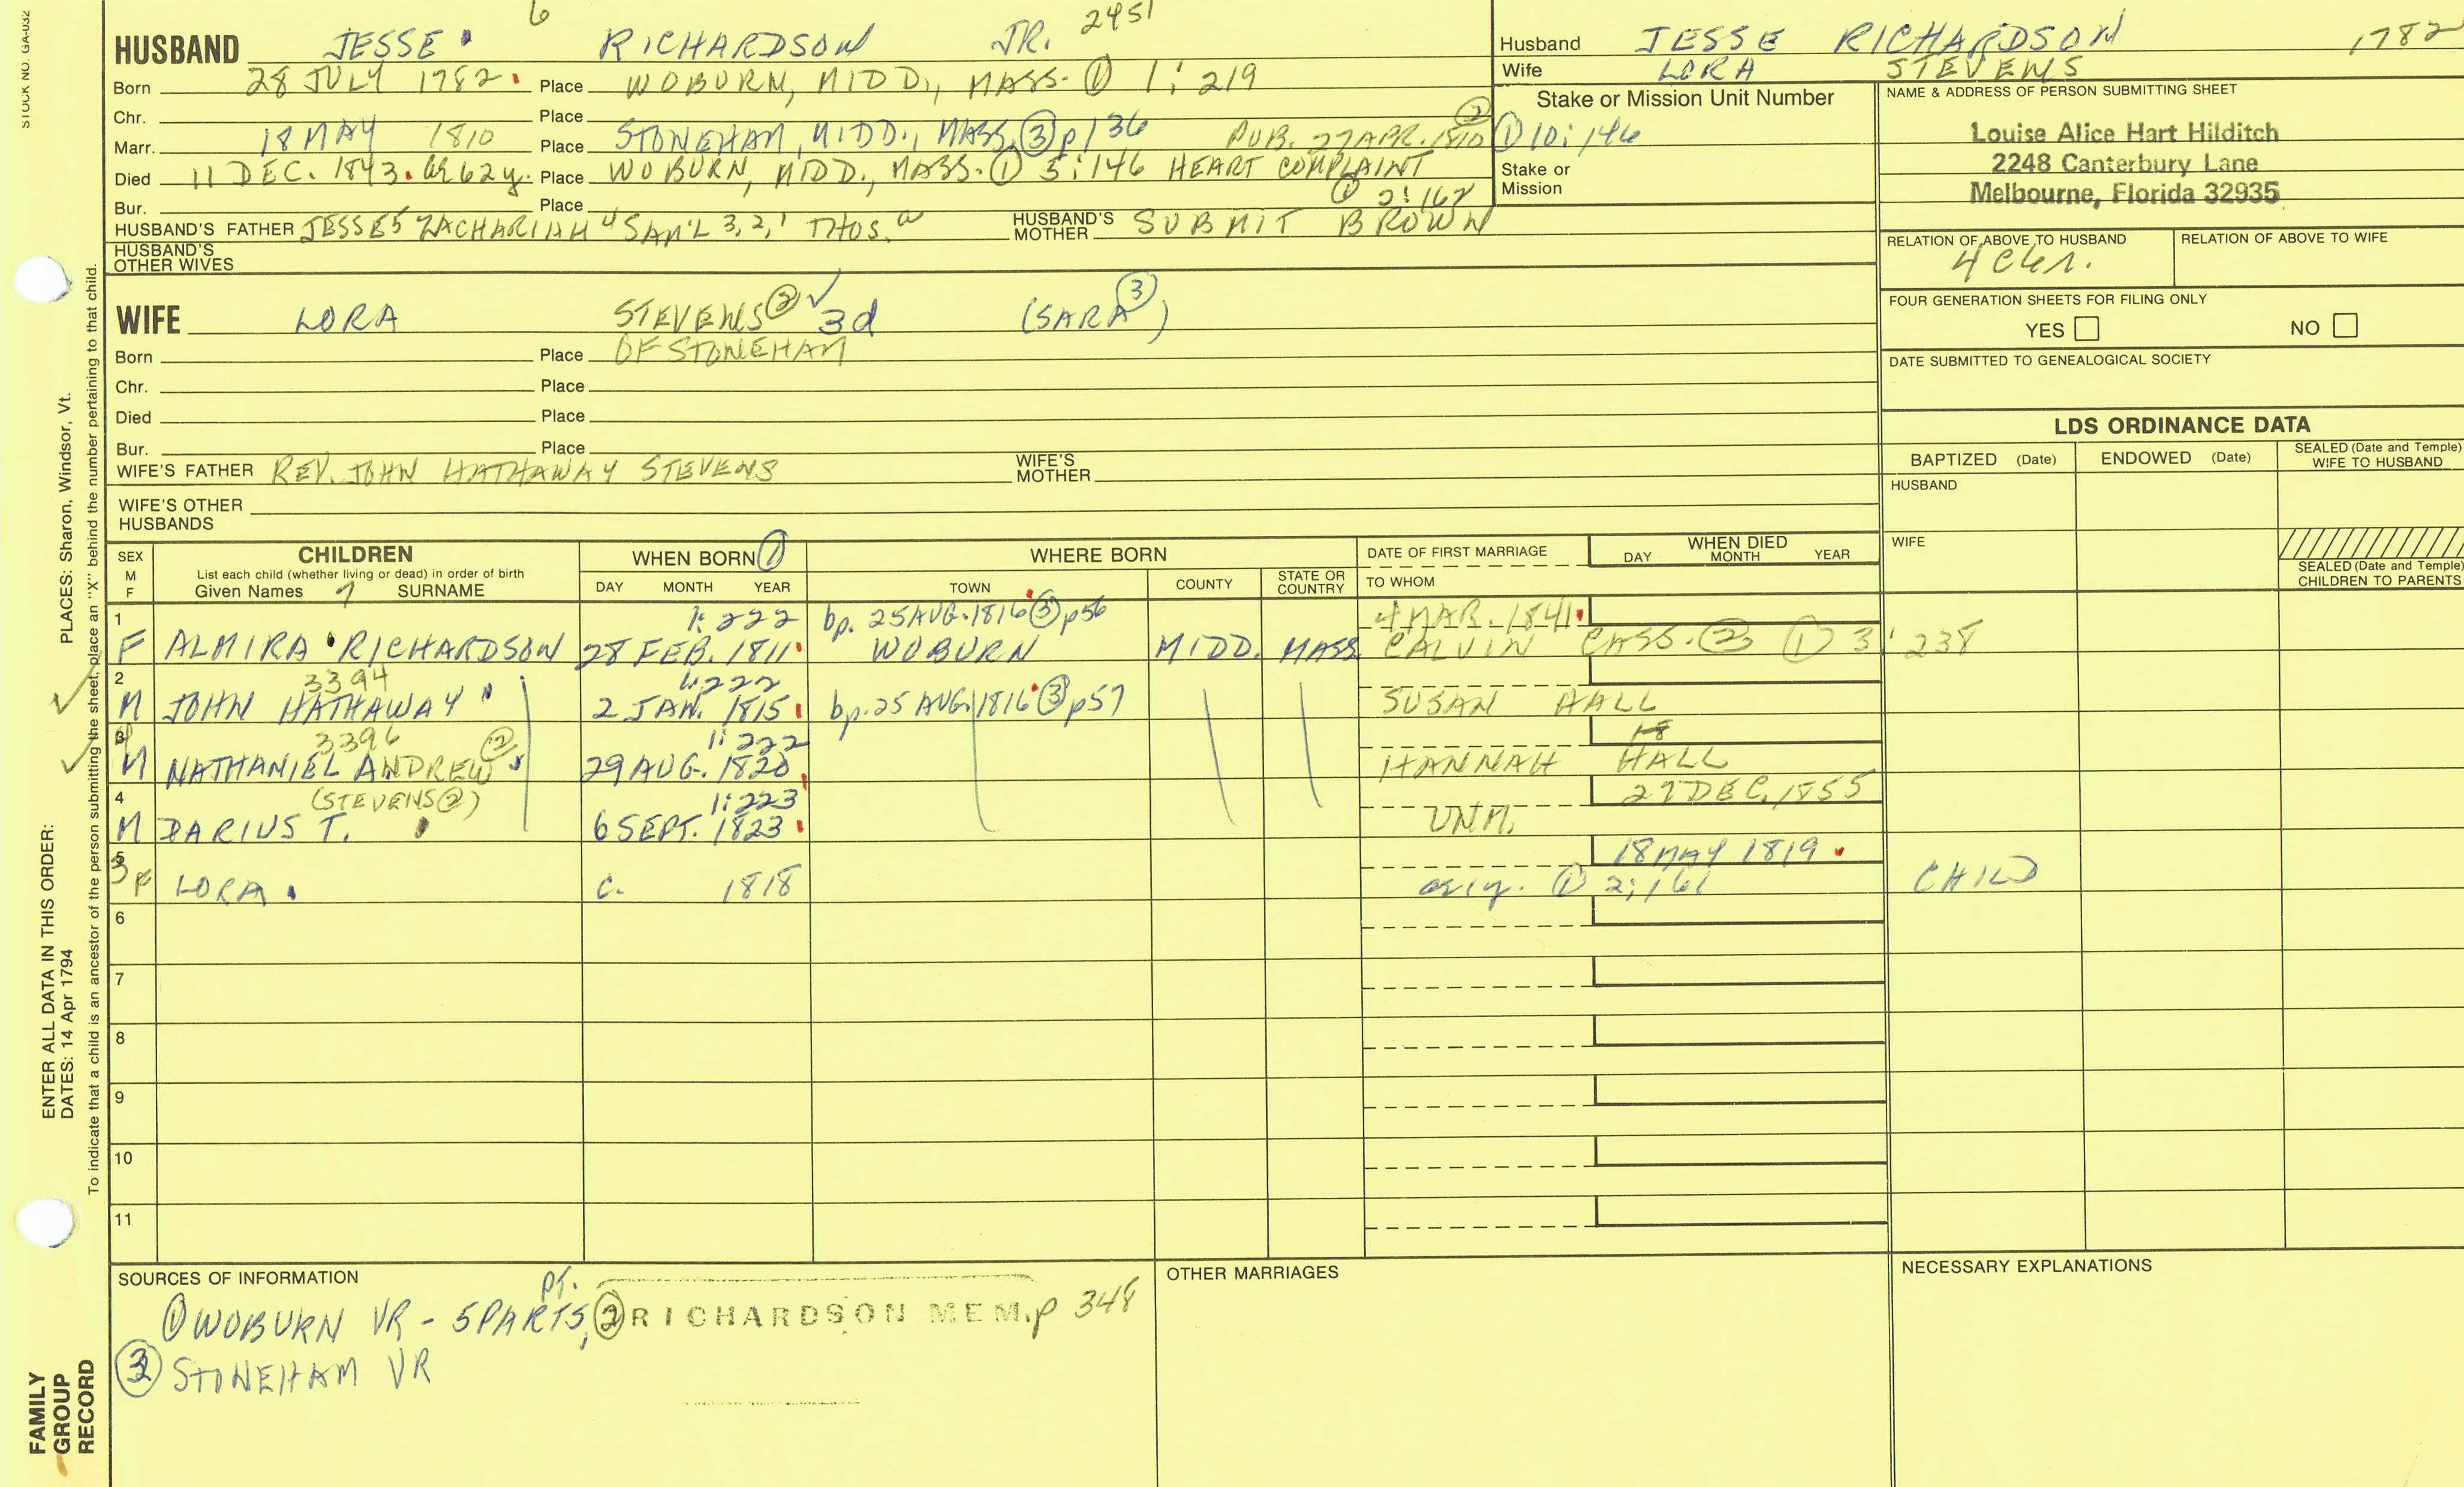 STOCK NO. GA-032
6 2451
HUSBAND JESSE RICHARDSON JR.
Born 28 JULY 1782. Place WOBURN, MIDD., MASS. ① 1:219
Chr. Place
Marr. 18 MAY 1810 Place STONEHAM, MIDD., MASS. ③ p136 PUB. 27 APR. 1810 ② ① 10:146
Died 11 DEC. 1843. ae 62y. Place WOBURN, MIDD., MASS. ① 5:146 HEART COMPLAINT
Bur. Place ① 2:162
HUSBAND'S FATHER JESSE5 ZACHARIAH 4 SAM'L 3,2,1 THOS. a HUSBAND'S MOTHER SUBMIT BROWN
HUSBAND'S OTHER WIVES
Husband JESSE RICHARDSON 1782
Wife LORA STEVENS
Stake or Mission Unit Number
Stake or Mission
NAME & ADDRESS OF PERSON SUBMITTING SHEET
Louise Alice Hart Hilditch
2248 Canterbury Lane
Melbourne, Florida 32935
RELATION OF ABOVE TO HUSBAND RELATION OF ABOVE TO WIFE
FOUR GENERATION SHEETS FOR FILING ONLY
YES NO
DATE SUBMITTED TO GENEALOGICAL SOCIETY
WIFE LORA STEVENS ② 3d (SARA ③)
Born Place OF STONEHAM
Chr. Place
Died Place
Bur. Place
WIFE'S FATHER REV. JOHN HATHAWAY STEVENS WIFE'S MOTHER
WIFE'S OTHER HUSBANDS
LDS ORDINANCE DATA
BAPTIZED (Date) ENDOWED (Date) SEALED (Date and Temple) WIFE TO HUSBAND
HUSBAND
WIFE
SEALED (Date and Temple) CHILDREN TO PARENTS
SEX M F
CHILDREN
List each child (whether living or dead) in order of birth
Given Names 7 SURNAME
WHEN BORN ①
DAY MONTH YEAR
WHERE BORN
TOWN COUNTY STATE OR COUNTRY
DATE OF FIRST MARRIAGE
TO WHOM
WHEN DIED
DAY MONTH YEAR
1 1:222 bp. 25 AUG. 1816 ③ p56 4 MAR. 1841.
F ALMIRA RICHARDSON 28 FEB. 1811 WOBURN MIDD. MASS. CALVIN CASS. ② ① 3:238
2 3394 1:222
M JOHN HATHAWAY 2 JAN. 1815 bp. 25 AUG. 1816 ③ p57 SUSAN HALL
3 4 3396 ② 1:222 18
M NATHANIEL ANDREW 29 AUG. 1820 HANNAH HALL
4 (STEVENS ②) 1:223 27 DEC. 1855
M DARIUS T. 6 SEPT. 1823 UNM.
5 3 18 MAY 1819.
F LORA c. 1818 ① 2:161 CHILD
6
7
8
9
10
11
SOURCES OF INFORMATION
① WOBURN VR - 5 PARTS, pt. ② RICHARDSON MEM. p 348
③ STONEHAM VR
OTHER MARRIAGES
NECESSARY EXPLANATIONS
ENTER ALL DATA IN THIS ORDER:
PLACES: Sharon, Windsor, Vt.
DATES: 14 Apr 1794
To indicate that a child is an ancestor of the person submitting the sheet, place an "X" behind the number pertaining to that child.
FAMILY GROUP RECORD